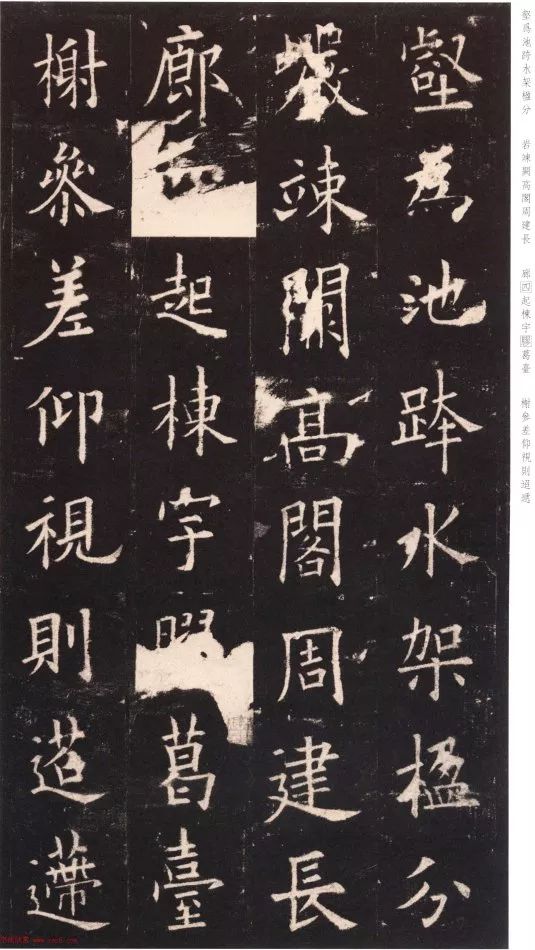 壑爲池跨水架楹分
巖竦闕高閣周建長
廊四起棟宇膠葛臺
榭參差仰視則迢遰
壑爲池跨水架楹分 岩竦闕高閣周建長 廊四起棟宇膠葛臺 榭參差仰視則迢遞